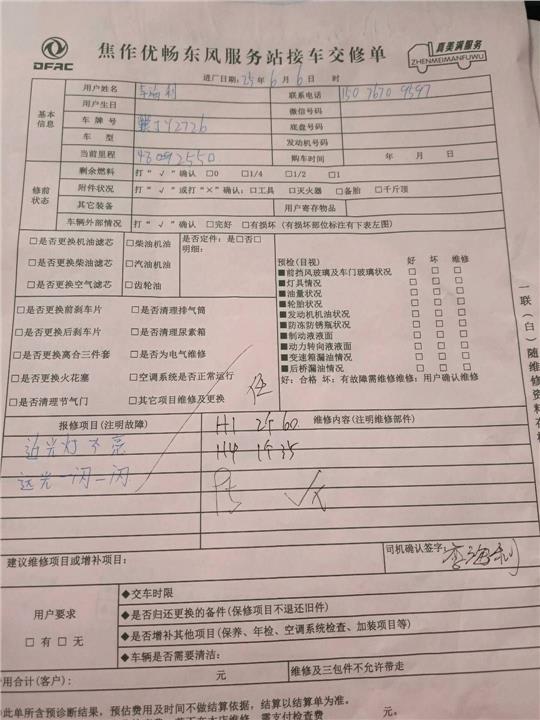 DFAC
焦作优畅东风服务站接车交修单
真美满服务
ZHENMEIMANFUWU
进厂日期：25年6月6日 时
基本信息
用户姓名 李海利 联系电话
用户生日 微信号码
车牌号 底盘号码
车型 发动机号
当前里程 购车时间 年 月 日
修前状态
剩余燃料 打“√”确认 □0 □1/4 □1/2 □1
附件状况 打“√”或打“×”确认：□工具 □灭火器 □备胎 □千斤顶
其它装备 用户寄存物品
车辆外部情况 打“√”确认 □完好 □有损坏（有损坏部位标注有下表左图）
□是否更换机油滤芯 □柴油机油 是否定件：是□否□
明细：
□是否更换柴油滤芯 □汽油机油
□是否更换空气滤芯 □齿轮油
□是否更换前刹车片 □是否清理排气筒
□是否更换后刹车片 □是否清理尿素箱
□是否更换离合三件套 □是否为电气维修
□是否更换火花塞 □空调系统是否正常运行
□是否清理节气门 □其它项目维修及更换
预检（目视） 好 坏 维修
■前挡风玻璃及车门玻璃状况 □ □ □
■灯具情况 □ □ □
■油量状况 □ □ □
■轮胎状况 □ □ □
■发动机机油状况 □ □ □
■防冻防锈瓶状况 □ □ □
■制动液液面 □ □ □
■动力转向液液面 □ □ □
■变速箱漏油情况 □ □ □
■后桥漏油情况 □ □ □
好：合格 坏：有故障需维修维修：用户确认维修
一联（白）随维修资料存档
报修项目（注明故障） 维修内容（注明维修部件）
近光灯不亮 H1 2个 60
远光一闪一闪 H4 1个 35
建议维修项目或增补项目：
司机确认签字：李海利
用户要求
□有 □无
◆交车时限
◆是否归还更换的备件（保修项目不退还旧件）
◆是否增补其他项目（保养、年检、空调系统检查、加装项目等）
◆车辆是否需要清洁：
费用合计（客户）： 元 维修及三包件不允许带走
此单所含预诊断结果，预估费用及时间不做结算依据，结算以结算单为准。